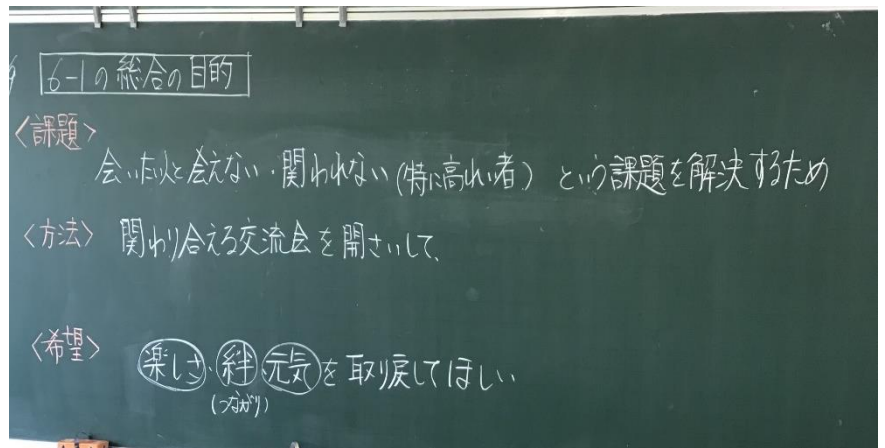 6-1の総合の目的
〈課題〉
会いたい人と会えない・関われない(特に高れい者) という課題を解決するため
〈方法〉 関わり合える交流会を開さいして、
〈希望〉 楽しさ・絆・元気を取り戻してほしい
(つながり)